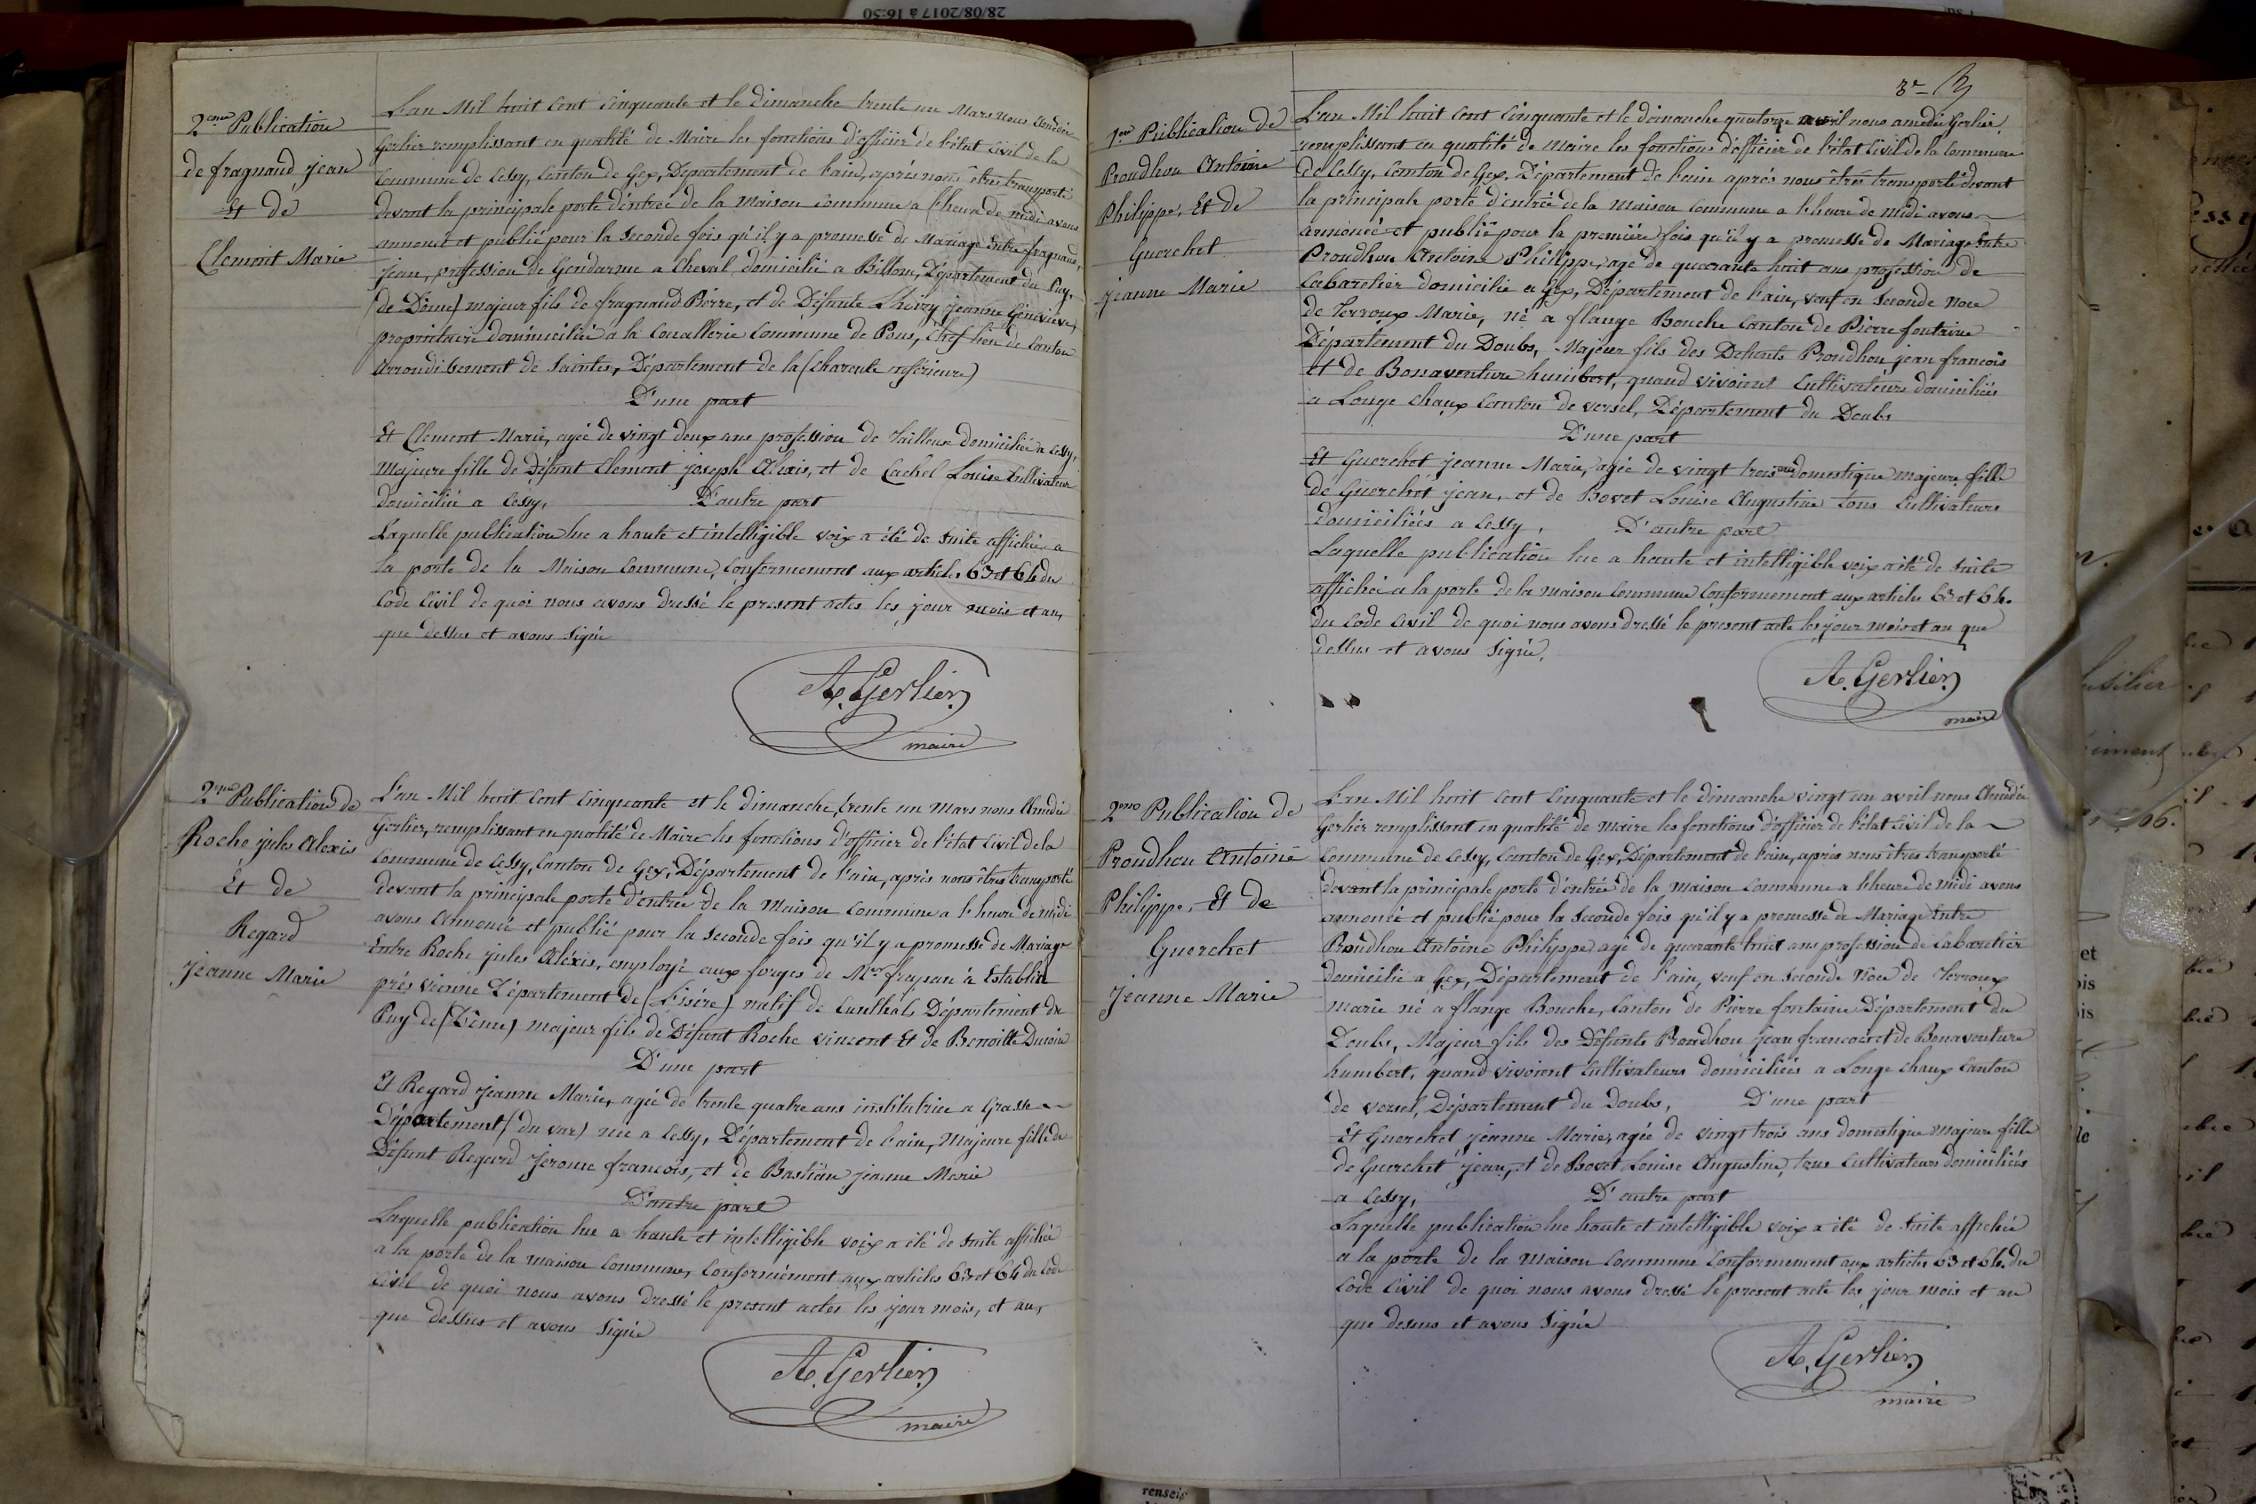 28/08/2017 à 16:50
2eme Publication
de fragnaud jean
Et de
Clement Marie
L'an Mil huit cent cinquante et le dimanche trente un Mars nous Amédée
Gerlier remplissant en qualité de Maire les fonctions d'officier de l'état civil de la
Commune de Cessy, Canton de Gex, Département de l'ain, après nous êtres transporté
devant la principale porte d'entrée de la Maison Commune a l'heure de midi avons
annoncé et publié pour la seconde fois qu'il y a promesse de Mariage Entre fragnaud,
jean, profession de Gendarme a Cheval domicilié a Billom, Département du Puy,
(de Dôme) majeur fils de fragnaud Pierre, et de Défunte Thoizy jeanne Geneviève,
propriétaire domicilié a la Couallerie Commune de Pons, Chef lieu de Canton
Arrondissement de Saintes, Département de la (Charente inférieure)
D'une part
Et Clement Marie, agée de vingt deux ans profession de Tailleuse domiciliée a Cessy,
Majeure fille de Défunt Clement joseph Alexis, et de Cachel Louise Cultivateur
domicilié a Cessy, D'autre part
Laquelle publication lue a haute et intelligible voix a été de suite affichée a
la porte de la Maison Commune, Conformement aux articles 63 et 64 du
Code Civil de quoi nous avons dressé le present actes les jour mois et an,
que dessus et avons signé
A. Gerlier
maire
2eme Publication de
Roche jules Alexis
Et de
Regard
jeanne Marie
L'an Mil huit cent cinquante et le dimanche, trente un Mars nous Amédée
Gerlier, remplissant en qualité de Maire les fonctions d'officier de l'état civil de la
Commune de Cessy, Canton de Gex, Département de l'ain, après nous êtres transporté
devant la principale porte d'entrée de la Maison Commune a l'heure de midi
avons Annoncé et publié pour la seconde fois qu'il y a promesse de Mariage
Entre Roche jules Alexis, employé aux forges de Mr frajean à Establin
près vienne Département de (L'isère) natif de Cunlhat Département du
Puy de (Dôme) majeur fils de Défunt Roche vincent Et de Benoitte
D'une part
Et Regard jeanne Marie, agée de trente quatre ans institutrice a Grasse
Département (du var) née a Cessy, Département de l'ain, Majeure fille de
Défunt Regard Jerome francois, et de Bastian jeanne Marie
D'autre part
Laquelle publication lue a haute et intelligible voix a été de suite affichée
a la porte de la maison commune, Conformément aux articles 63 et 64 du Code
Civil de quoi nous avons dressé le present actes les jour mois, et an,
que dessus et avons signé
A. Gerlier
maire
1ere Publication de
Proudhon Antoine
Philippe, Et de
Guerchet
jeanne Marie
L'an Mil huit cent cinquante et le dimanche quatorze avril nous amedée Gerlier
remplissant en qualité de maire les fonctions d'officier de l'état Civil de la Commune
de Cessy, Canton de Gex, Département de l'ain après nous êtres transporté devant
la principale porte d'entrée de la Maison Commune a l'heure de midi avons
annoncé et publié pour la première fois qu'il y a promesse de Mariage Entre
Proudhon Antoine Philippe, agé de quarante huit ans profession de
Cabaretier domicilié a Gex, Département de l'ain, veuf en seconde noce
de Terroux Marie, né a flange Bouche Canton de Pierre fontaine
Département du Doubs, Majeur fils des Defunts Proudhon jean francois
et de Bonaventure humbert, quand vivoient Cultivateurs domiciliés
a Longe chaux Canton de versel, Département du Doubs
D'une part
Et Guerchet jeanne Marie, agée de vingt trois ans domestique majeure fille
de Guerchet jean, et de Bovet Louise Augustine tous Cultivateurs
domiciliés a Cessy, D'autre part
Laquelle publication lue a haute et intelligible voix a été de suite
affichée a la porte de la maison commune Conformement aux articles 63 et 64.
du Code Civil de quoi nous avons dressé le present acte les jour mois et an que
dessus et avons signé.
A. Gerlier
maire
2eme Publication de
Proudhon Antoine
Philippe, Et de
Guerchet
Jeanne Marie
L'an Mil huit cent cinquante et le dimanche vingt un avril nous Amédée
Gerlier remplissant en qualité de maire les fonctions d'officier de l'état Civil de la
Commune de Cessy, Canton de Gex, Département de l'ain, après nous êtres transporté
devant la principale porte d'entrée de la maison commune a l'heure de midi avons
annoncé et publié pour la seconde fois qu'il y a promesse de Mariage Entre
Proudhon Antoine Philippe agé de quarante huit ans profession de Cabaretier
domicilié a Gex, Département de l'ain, veuf en seconde Noce de Terroux
marie né a flange Bouche, Canton de Pierre fontaine Département du
Doubs, Majeur fils des Défunts Proudhon jean francois et de Bonaventure
humbert, quand vivoient Cultivateurs domiciliés a Longe chaux Canton
de versel, Département du Doubs, D'une part
Et Guerchet jeanne Marie, agée de vingt trois ans domestique majeure fille
de Guerchet jean, et de Bovet Louise Augustine, tous cultivateurs domiciliés
a Cessy, D'autre part
Laquelle publication lue haute et intelligible voix a été de suite affichée
a la porte de la maison commune Conformement aux articles 63 et 64 du
Code Civil de quoi nous avons dressé le present acte les jour mois et an
que dessus et avons signé
A. Gerlier
maire
renseig